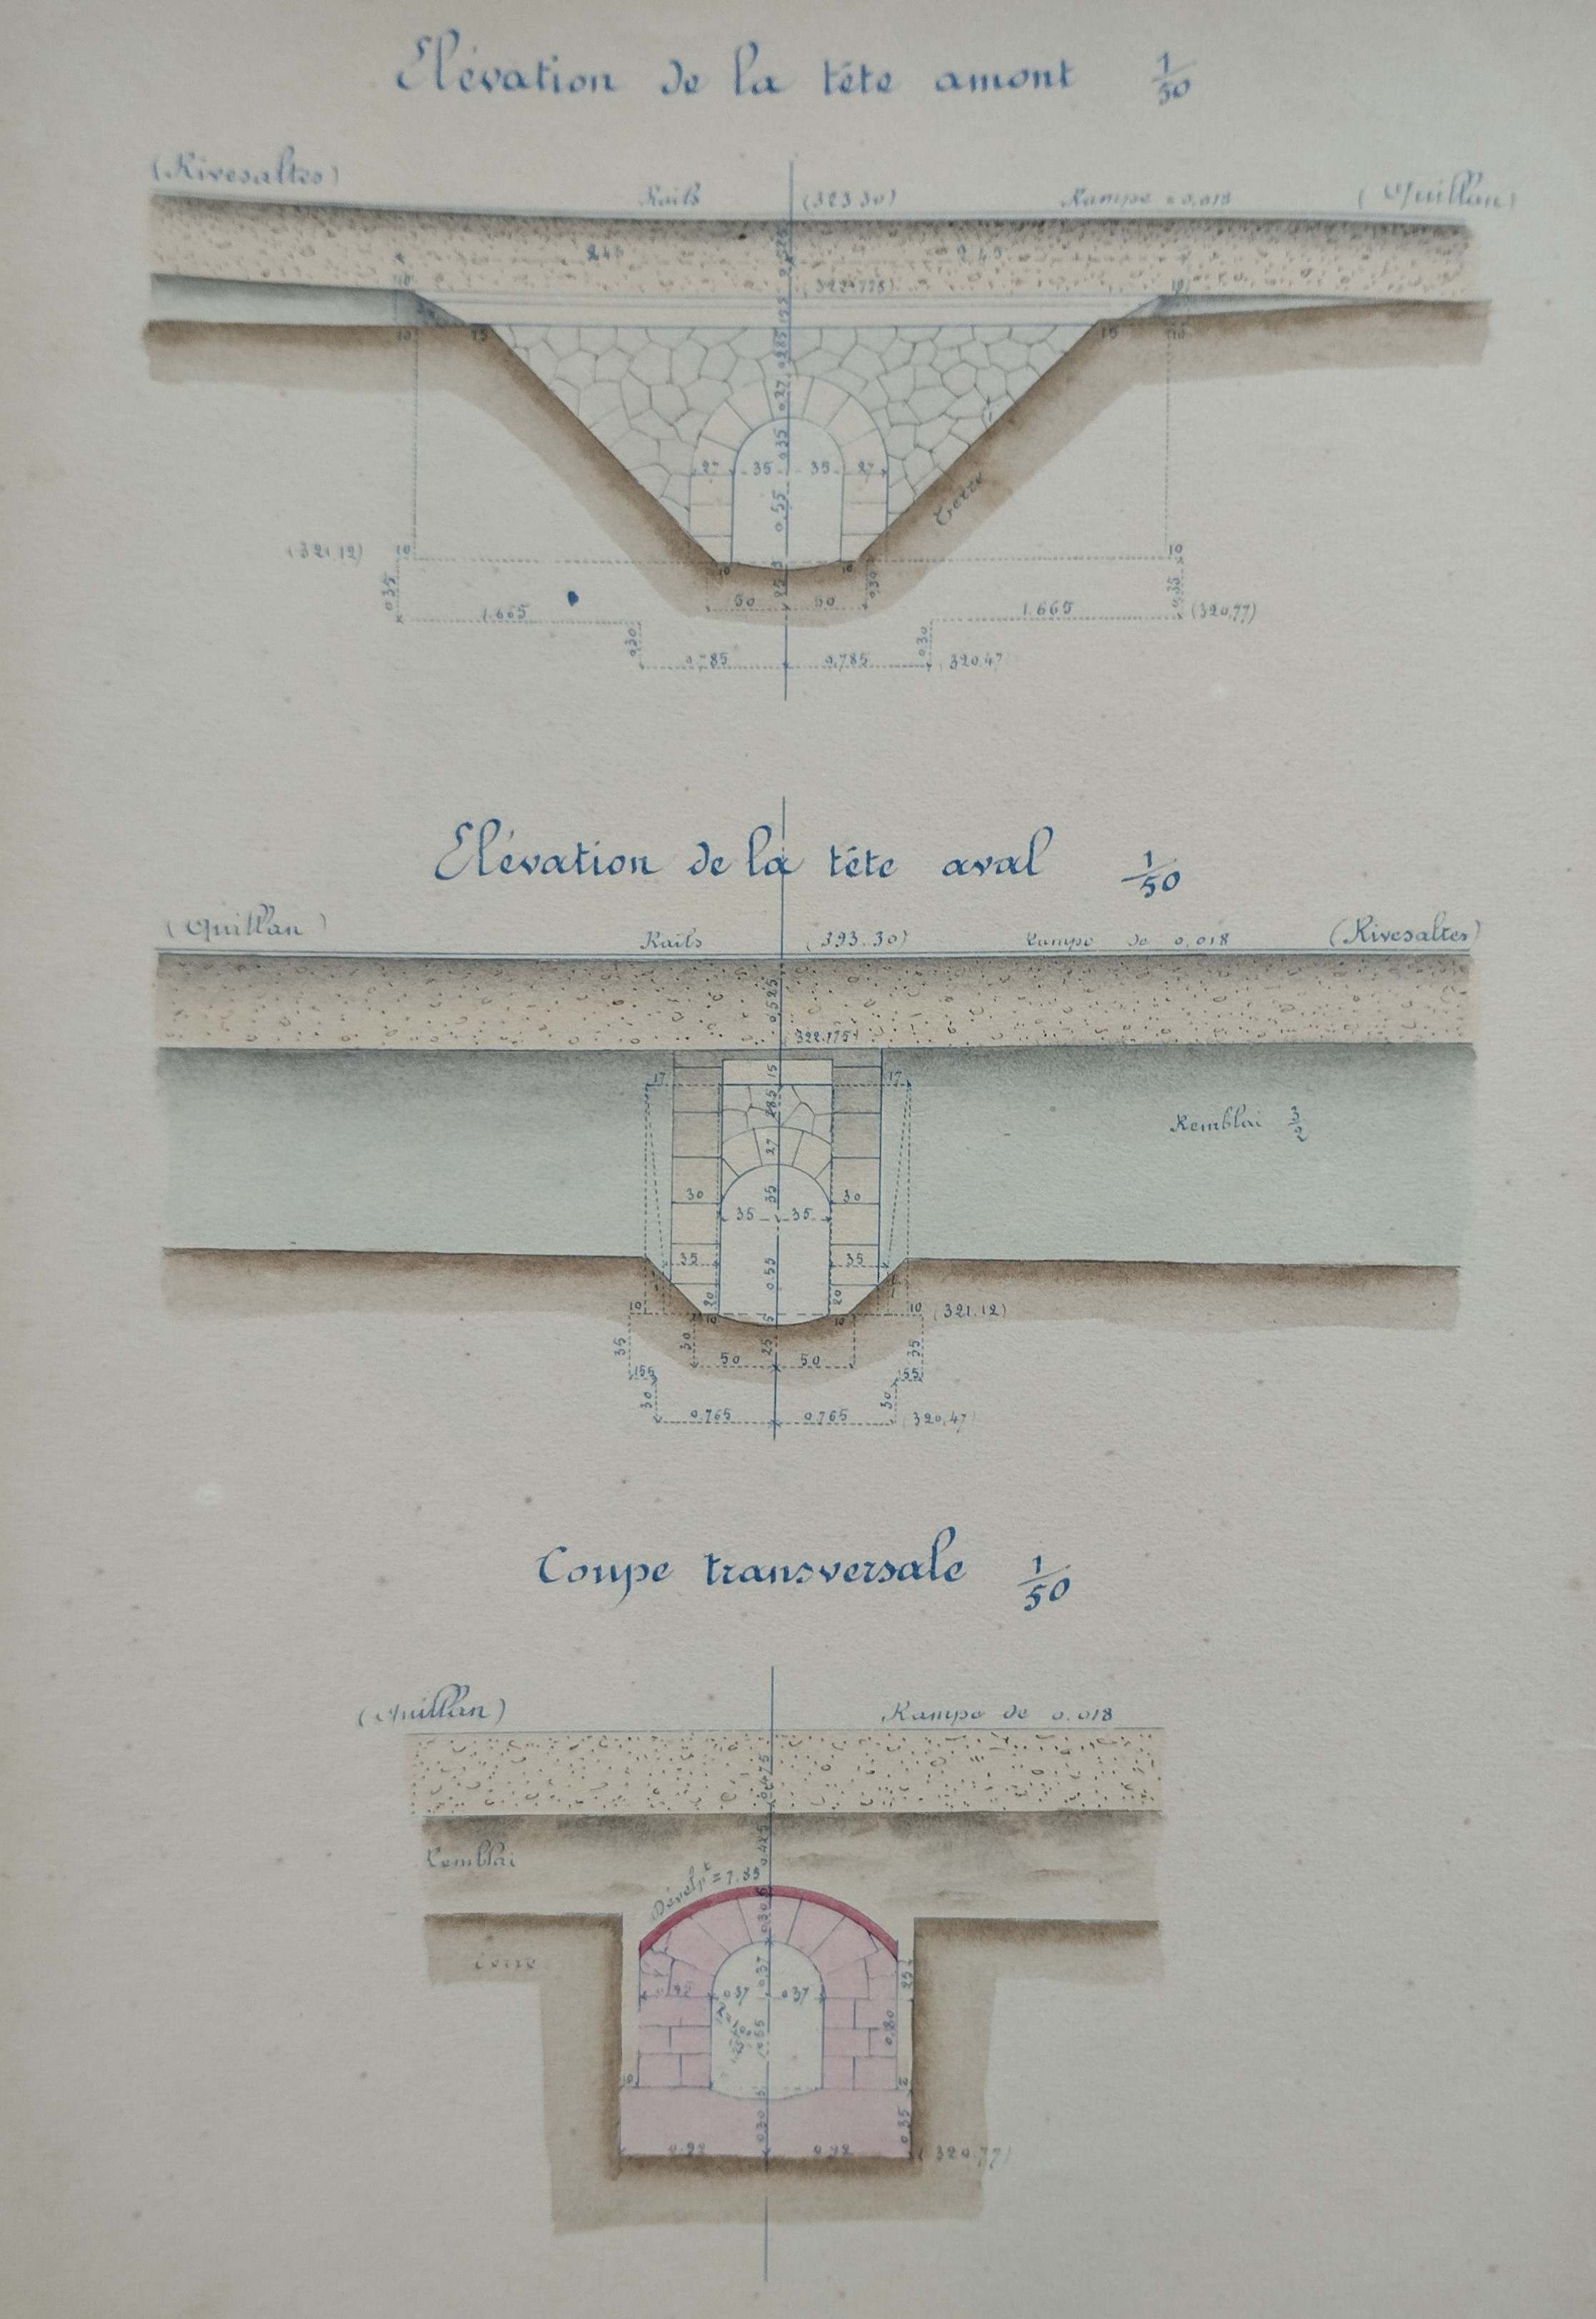 Elévation de la tête amont 1/50
(Rivesaltes)
Rails (323 30) Rampe 0,018 (Quillan)
2.45 2.45
(322.775)
10 10
10 15 15 10
0,27 0,35
27 35 35 27
0,55
Terre
(321,12) 10 10 10 10
0,35 50 25 50 0,30 0,35
1.665 1.665 (320,77)
0,30 0,30
0,785 0,785 (320,47)
Elévation de la tête aval 1/50
(Quillan) Rails (393.30) Rampe de 0,018 (Rivesaltes)
0,525
322.775
17 15 17
285
Remblai 3/2
27
30 35 30
35 35
35 0.55 35
20 20
10 10 5 10 10 (321.12)
35 30 25 35
50 50
155 155
30 30
0.765 0.765 (320,47)
Coupe transversale 1/50
(Quillan) Rampe de 0.018
0,475
Remblai 0,425
Dévelpt = 1.85
Terre
0,37 25
0,37 0,37
0,55 0,80
10
0,30 0,35
0,92 0,92 (320,77)